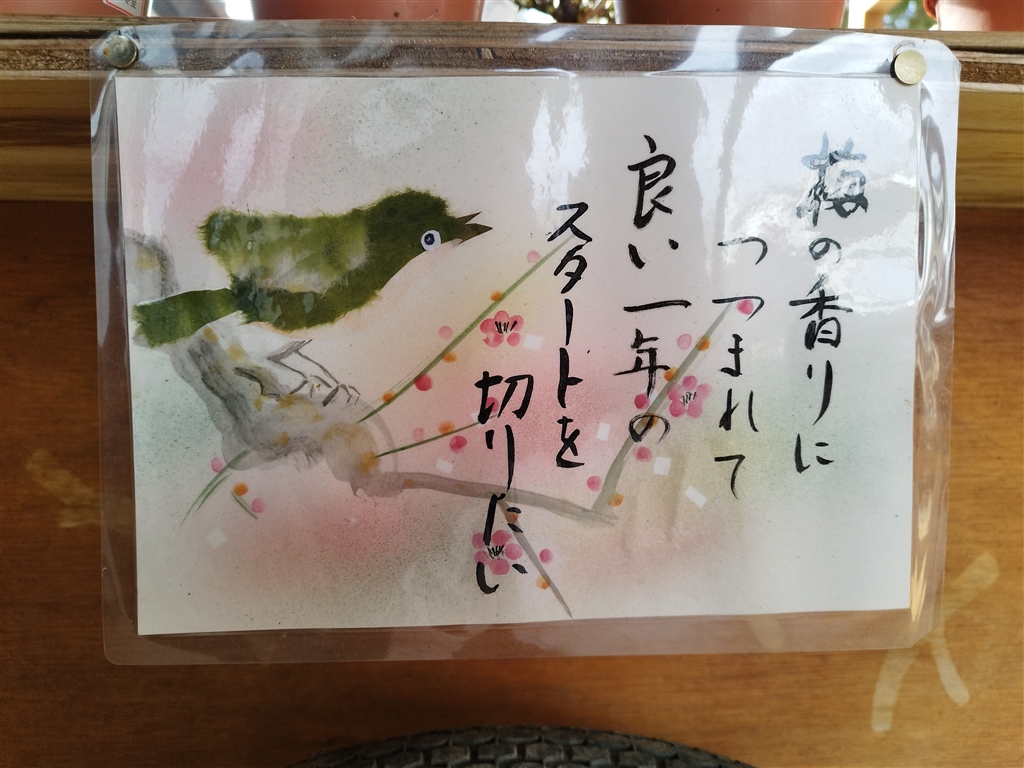 梅の香りに
つつまれて
良い一年の
スタートを
切りたい